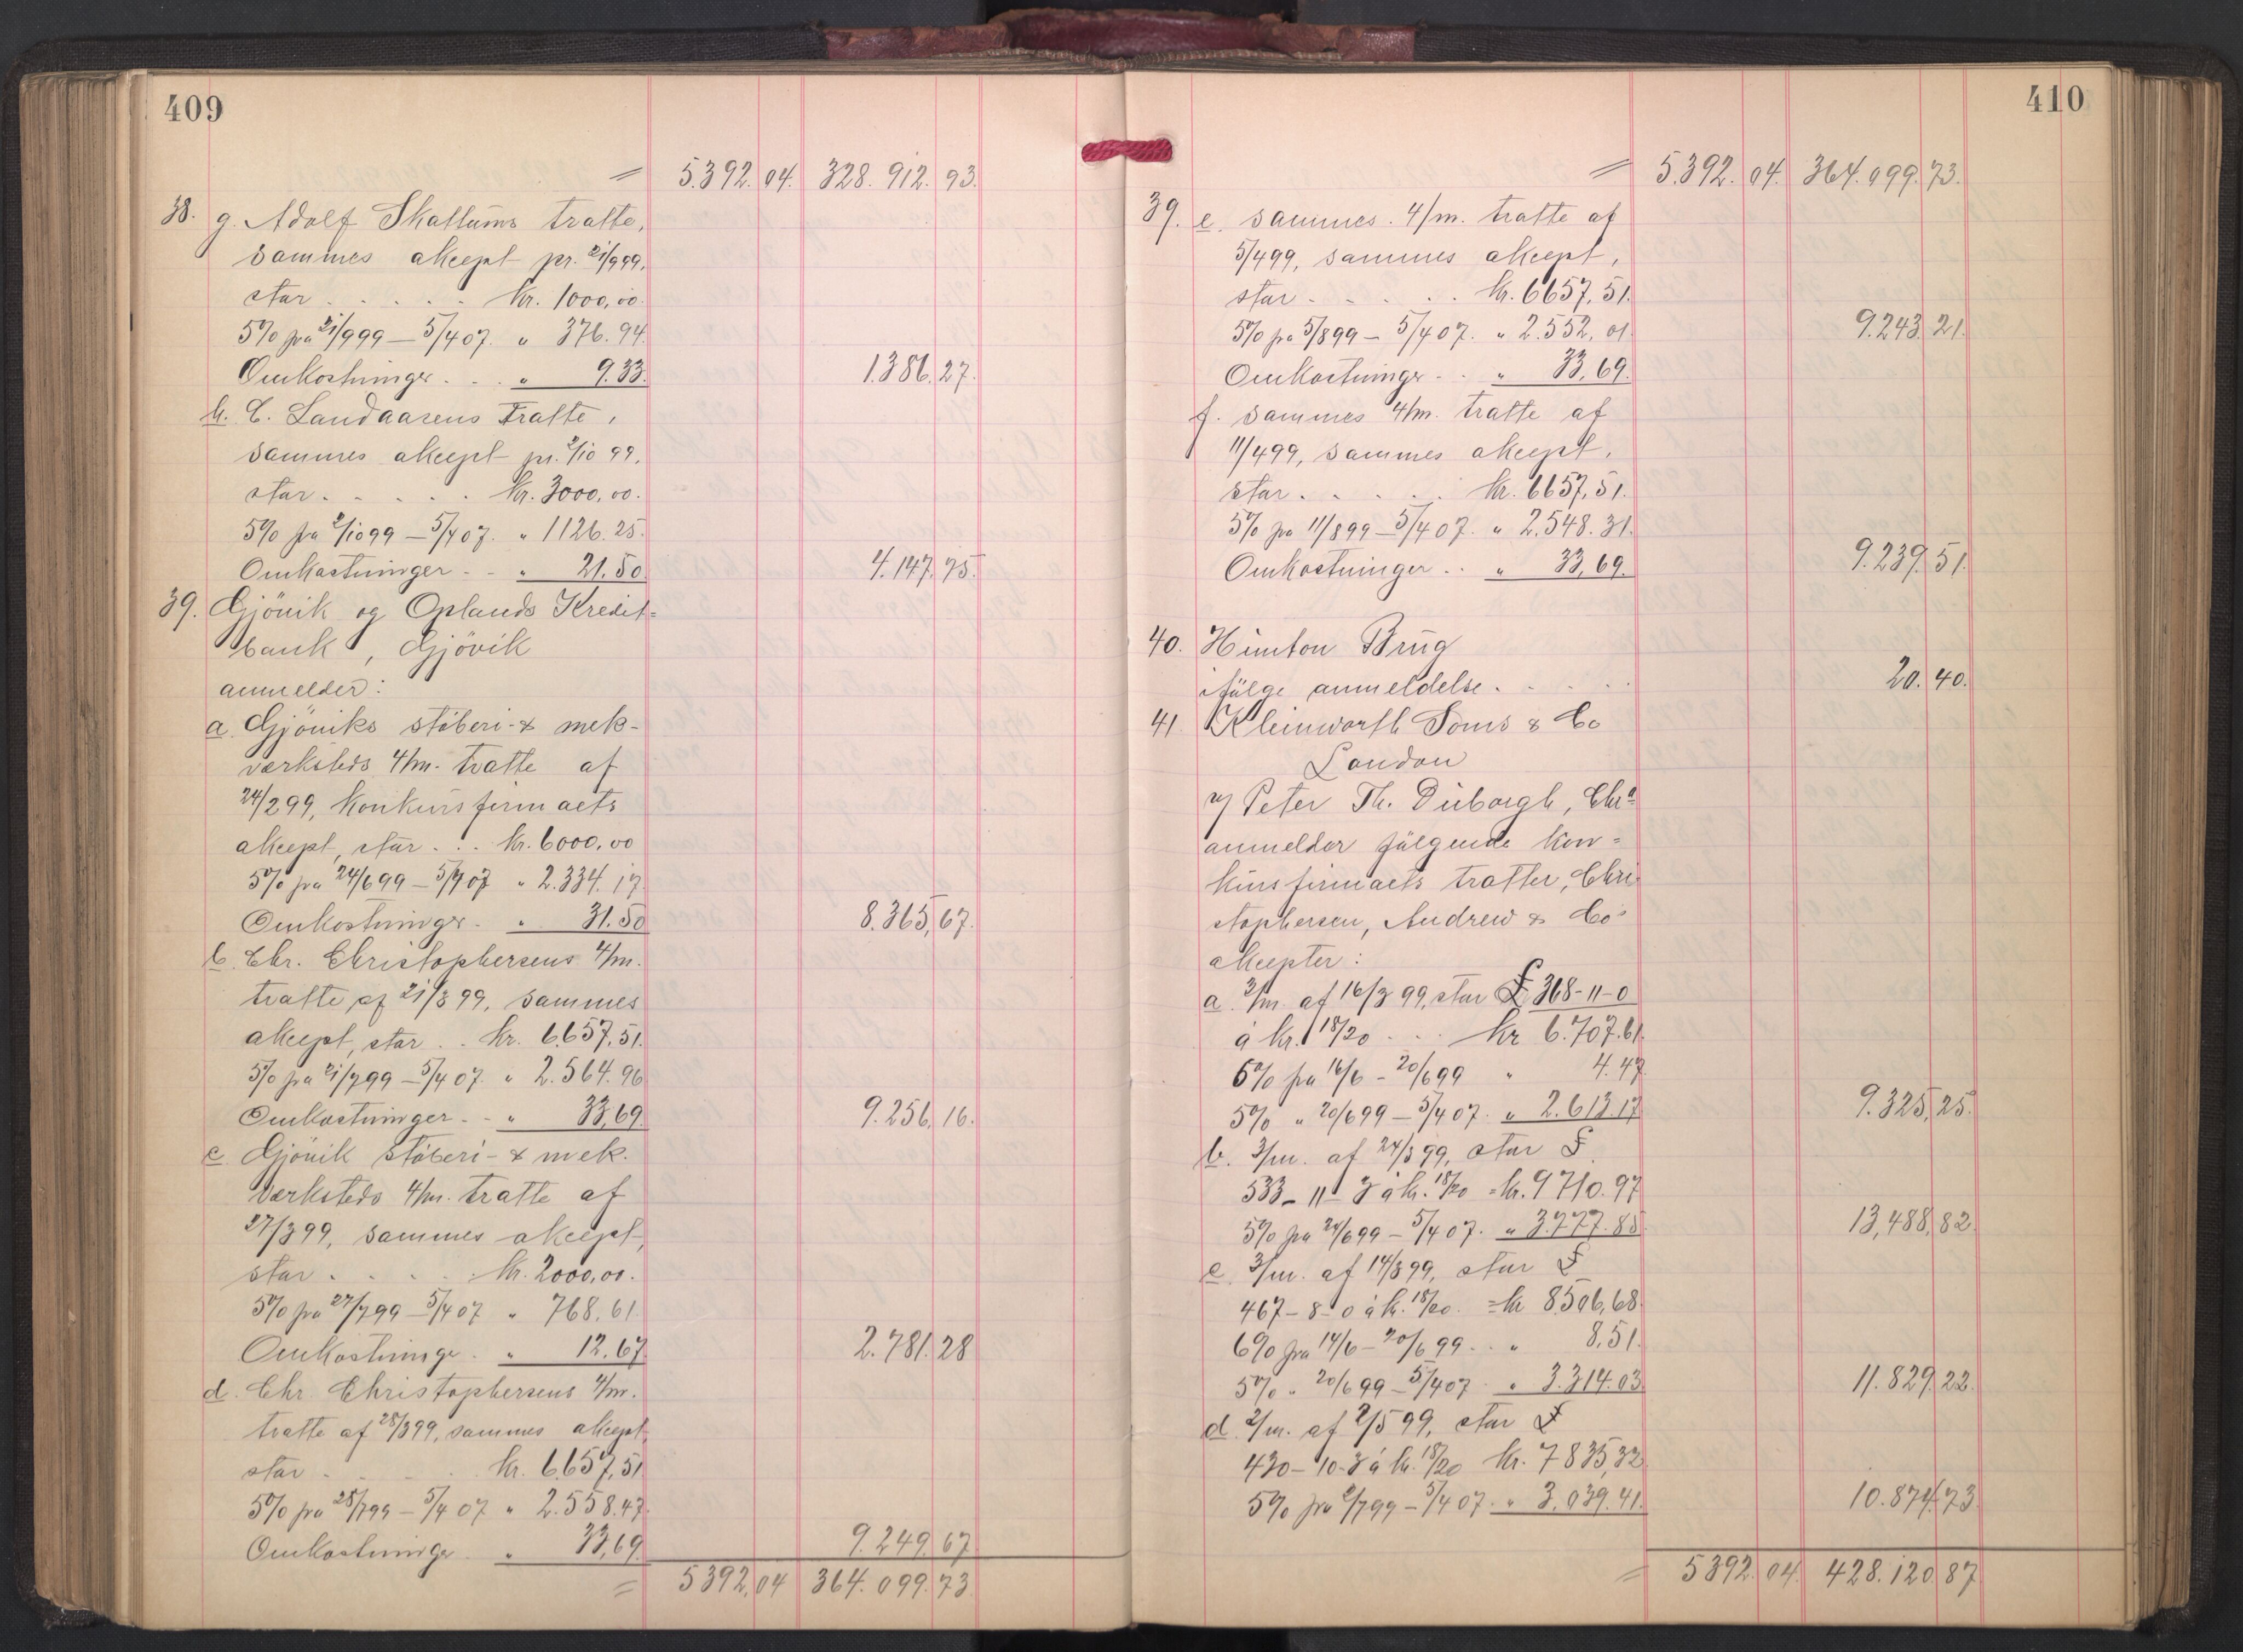 409
= 5.392.04. 328.912.93.
38. g. Adolf Skattums tratte,
sammes akcept pr. 21/9 99,
stor . . . . . kr. 1000,00.
5% fra 21/9 99 – 5/4 07. " 376.94.
Omkostninger . . . " 9.33. 1.386.27.
h. C. Landaasens tratte,
sammes akcept pr. 2/10 99,
stor . . . . . kr. 3000,00.
5% fra 2/10 99 – 5/4 07. " 1126.25.
Omkostninger - - " 21.50 4.147.75.
39. Gjövik og Oplands Kredit=
bank, Gjövik
anmelder:
a. Gjöviks stöberi- & mek-
værksteds 4/m. tratte af
24/2 99, konkursfirmaets
akcept, stor . . . kr. 6000,00
5% fra 24/6 99 – 5/4 07 " 2.334.17
Omkostninger - " 31.50 8.365,67.
b. Chr. Christophersens 4/m.
tratte af 21/3 99, sammes
akcept, stor . . kr. 6.657,51.
5% fra 21/7 99 – 5/4 07. " 2.564.96
Omkostninger - - " 33,69. 9.256,16.
c. Gjövik stöberi- & mek.
værksteds 4/m. tratte af
27/3 99, sammes akcept,
stor . . . . . kr. 2000,00.
5% fra 27/7 99 – 5/4 07 " 768,61.
Omkostninge . " 12.67 2.781.28
d. Chr. Christophersens 4/m.
tratte af 28/3 99, sammes akcept,
stor - . . . kr. 6.657,51
5% fra 28/7 99 – 5/4 07 " 2.558.47.
Omkostninge . " 33,69. 9.249.67
= 5392,04 364.099.73.
410
= 5.392.04. 364.099.73.
39. e. sammes 4/m. tratte af
5/4 99, sammes akcept,
stor - . . . . kr. 6657,51.
5% fra 5/8 99 – 5/4 07. " 2.552,01. 9.243.21.
Omkostninger - . " 33,69.
f. sammes 4/m. tratte af
11/4 99, sammes akcept,
stor . . . . . kr. 6657,51.
5% fra 11/8 99 – 5/4 07. " 2.548.31.
Omkostninger . . " 33,69. 9.239.51.
40. Hunton Brug
ifölge anmeldelse . . . . . 20.40.
41. Kleinworth Sons & Co
London
v/ Peter Th. Duborgh, Chra
anmelder fölgende kon=
kursfirmaets tratter, Chri
stophersen, Andrew & Co's
akcepter:
a. 3/m. af 16/3 99, stor £ 368-11-0
à kr. 18/20 . . . kr 6.707.61.
6% fra 16/6 – 20/6 99 " 4.47.
5% " 20/6 99 – 5/4 07. " 2.613.17 9.325,25.
b. 3/m. af 24/3 99, stor £
533-11-3 à kr. 18/20 = kr. 9710.97
5% fra 24/6 99 – 5/4 07. " 3777.85 13,488,82.
c. 3/m. af 14/3 99, stor £
467-8-0 à kr. 18/20. = kr 8506,68.
6% fra 14/6 – 20/6 99 . . " 8,51.
5% " 20/6 99 – 5/4 07 . " 3.314.03. 11.829.22.
d. 2/m. af 2/5 99, stor £
430-10-3 à kr. 18/20 kr. 7835,32
5% fra 2/7 99 – 5/4 07. " 3.039.41. 10.874.73.
= 5392.04. 428.120.87